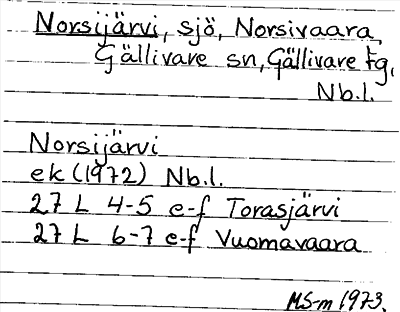 Norsijärvi, sjö, Norsivaara,
Gällivare sn, Gällivare tg,
Nb.l.
Norsijärvi
ek (1972) Nb.l.
27 L 4-5 e-f Torasjärvi
27 L 6-7 e-f Vuomavaara
MS-m 1973.